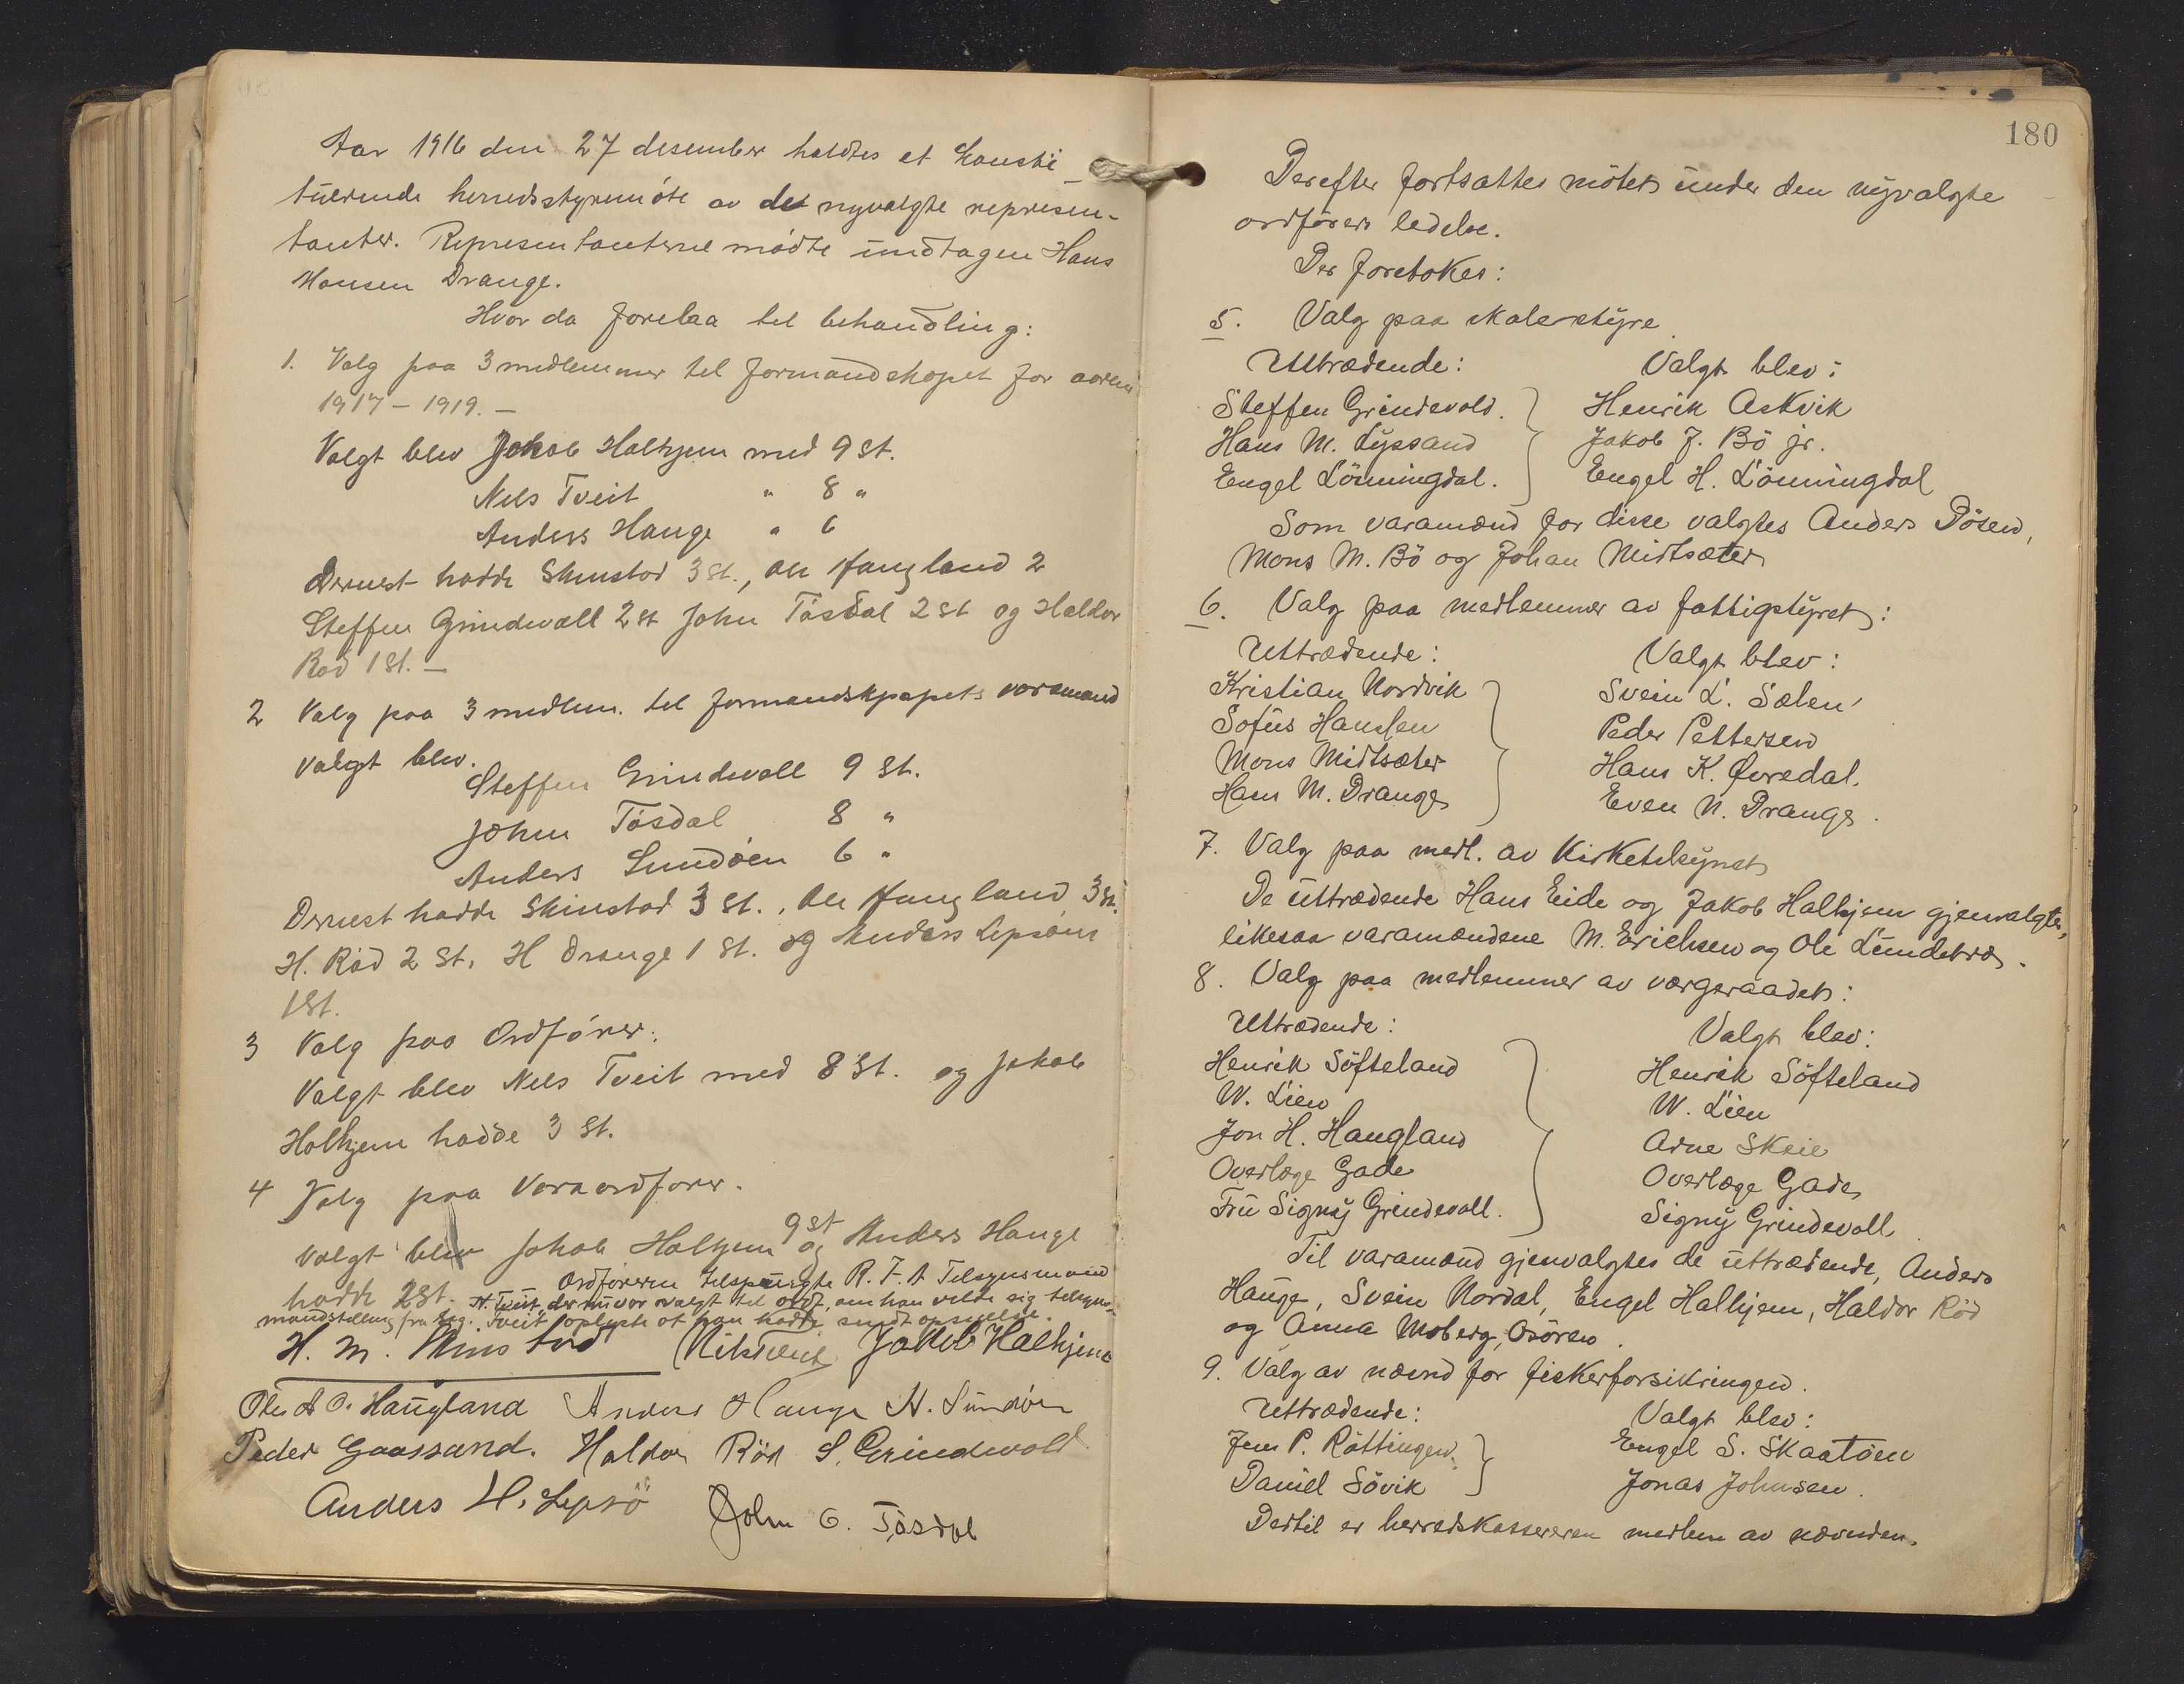 Aar 1916 den 27 desember holdtes et konsti-
tuerende herredsstyremöte av det nyvalgte represen-
tanter. Representanterne mødte undtagen Hans
Hansen Drange.
Hvor da forelaa til behandling:
1. Valg paa 3 medlemmer til formandskapet for aarene
1917 - 1919. -
Valgt blev Jakob Halhjem med 9 st.
Nils Tveit " 8 "
Anders Hauge " 6
Dernest hadde Skinstad 3 st., Ole Haugland 2
Steffen Grindevoll 2 st John Tösdal 2 st og Haldor
Röd 1 st. -
2 Valg paa 3 medlem. til formandskapets varamænd
valgt blev.
Steffen Grindevoll 9 st.
John Tösdal 8 "
Anders Sundöen 6 "
Dernest hadde Skinstad 3 st., Ole Haugland 3 st.
H. Röd 2 st, H Drange 1 st. og Anders Lepsöen
1 st.
3 Valg paa Ordförer.
Valgt blev Nils Tveit med 8 st. og Jakob
Halhjem hadde 3 st.
4 Valg paa Varaordförer.
valgt blev Jakob Halhjem 9 st og Anders Hauge
hadde 2 st. - Ordföreren tilspurgte R.F.A Tilsynsmand
N. Tveit, der nu var valgt til ordf, om han vilde sig tilsyns-
mandstilling fra seg. Tveit oplyste at han hadde sendt opsigelse.
H. M. Skinstad Nils Tveit Jakob Halhjem
Ole A O. Haugland Anders Hauge A. Sundöen
Peder Gaassand. Haldor Röd S. Grindevold
Anders H. Lepsö John O. Tösdal
180
Derefter fortsattes mötet under den nyvalgte
ordförers ledelse.
Der foretokes:
5. Valg paa skolestyre
Uttrædende: Valgt blev:
Steffen Grindevold. Henrik Askvik
Hans M. Lyssand Jakob J. Bö jr.
Engel Lönningdal. Engel H. Lönningdal
Som varamænd for disse valgtes Anders Dösen,
Mons M. Bö og Johan Midtsæter
6. Valg paa medlemmer av fattigstyret:
Uttrædende: Valgt blev:
Kristian Nordvik Svein L. Sælen
Sofus Hanssen Peder Pettersen
Mons Midtsæter Hans K. Øvredal.
Hans M. Drange Even N. Drange.
7. Valg paa medl. av Kirketilsynet
De uttrædende Hans Eide og Jakob Halhjem gjenvalgtes,
likesaa varamændene M. Erichsen og Ole Lundetræ.
8. Valg paa medlemmer av værgeraadet:
Uttrædende: Valgt blev:
Henrik Söfteland Henrik Söfteland
W. Lien W. Lien
Jon H. Haugland Arne Skeie
Overlæge Gade Overlæge Gade
Fru Signy Grindevoll. Signy Grindevoll
Til varamænd gjenvalgtes de uttrædende, Anders
Hauge, Svein Nordal, Engel Halhjem, Haldor Röd
og Anna Moberg, Osören.
9. Valg av nævnd for fiskerforsikringen.
Uttrædende: Valgt blev:
Jens P. Röttingen. Engel S. Skaatöen
Daniel Sövik Jonas Johnsen.
Dertil er herredskassereren medlem av nævnden.